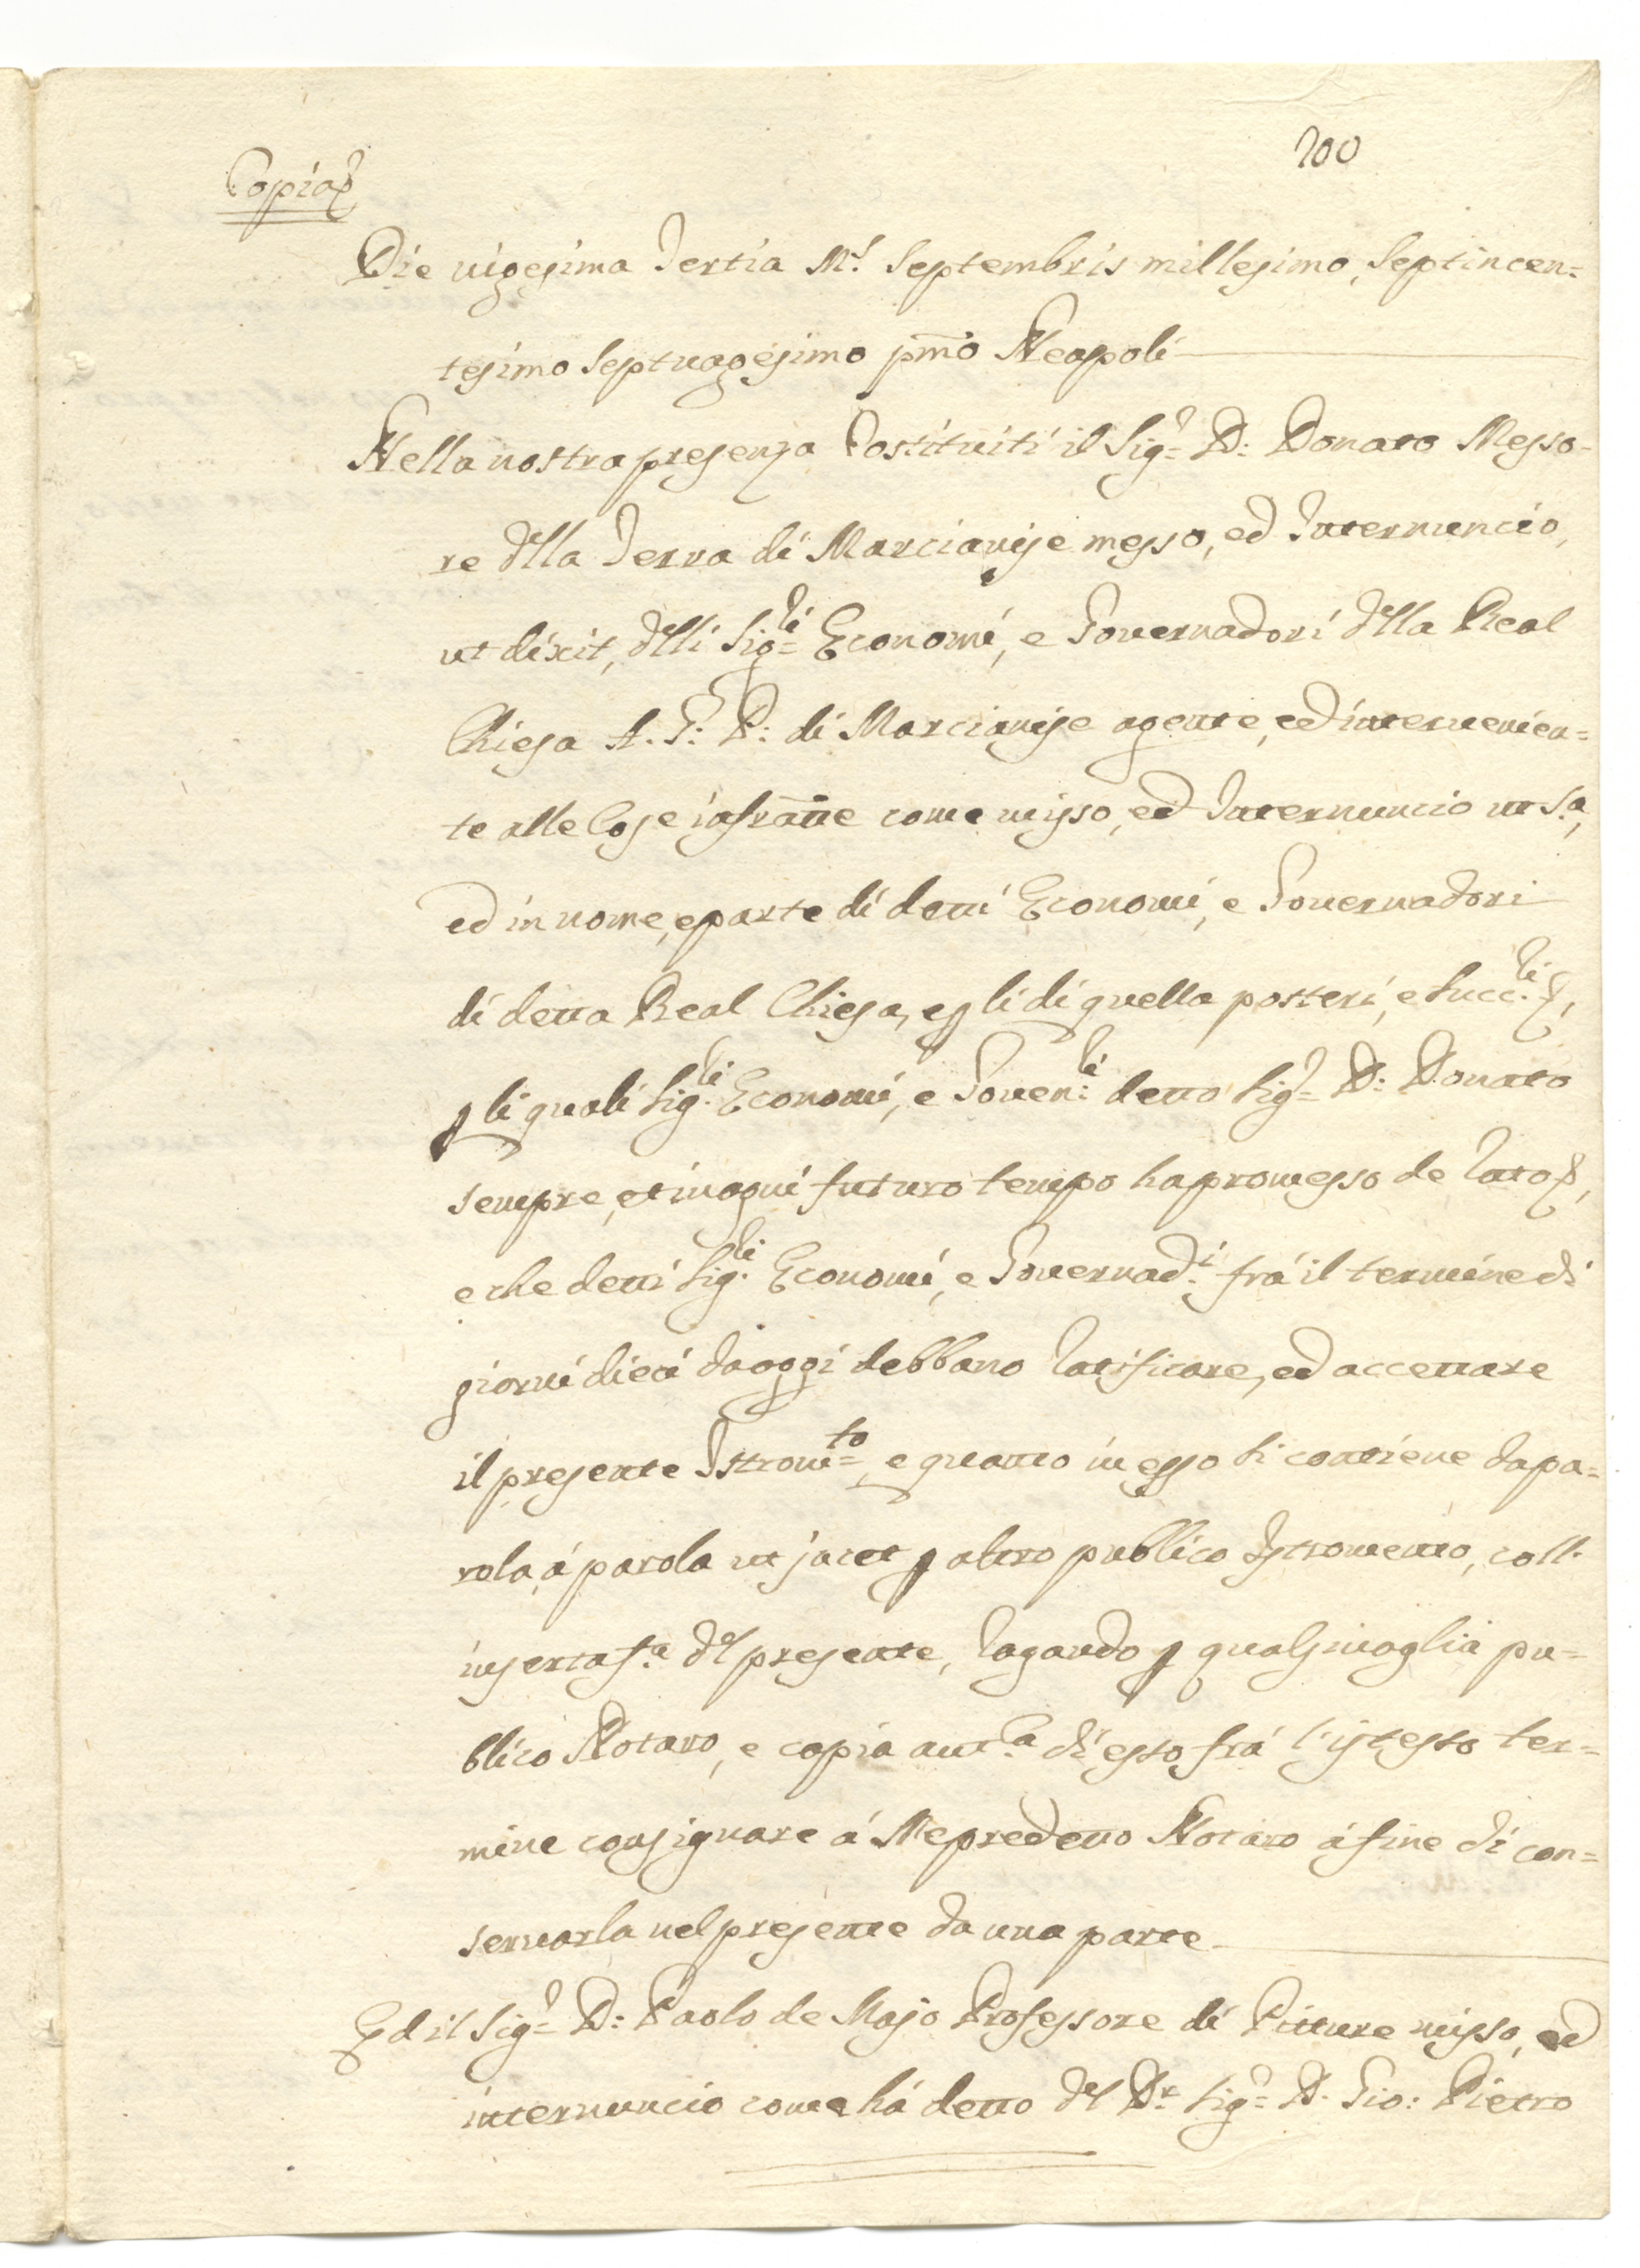 200
Copia
Die vigesima Tertia M.s Septembris millesimo, Septincen=
tesimo Septuagesimo pmõ Neapoli
Nella nostra presenza Costituiti il Sig.r D: Donato Messo-
re d'lla Terra di Marcianise messo, ed Internuncio,
ut dixit, d'lli Sig.ri Economi, e Governadori d'lla Real
Chiesa A. G: P: di Marcianise agente, ed intervenien=
te alle Cose infratte come misso, ed Internuncio ut s.a,
ed in nome, e parte di detti Economi, e Governadori
di detta Real Chiesa, e p li di quella posteri, e Succ.ri &,
p li quali Sig.ri Economi, e Goven.ri detto Sig.r D: Donato
sempre, et in ogni futuro tempo ha promesso de Rato &,
e che detti Sig.ri Economi, e Governad.i frà il termine di
giorni dieci da oggi debbano Ratificare, ed accettare
il presente Istrom.to, e quanto in esso si contiene da pa=
rola, à parola ut jacet p altro publico Istromento, coll.
inserta f.a d'l presente, Rogando p qualsivoglia pu=
blico Notaro, e copia aut.ca di esso frà l'istesso ter=
mine consignare à Me predetto Notaro à fine di con=
servarla nel presente da una parte
Ed il Sig.r D: Paolo de Majo Professore di Pitture misso, ed
internuncio come hà detto d'l D.r Sig.r D. Gio: Pietro